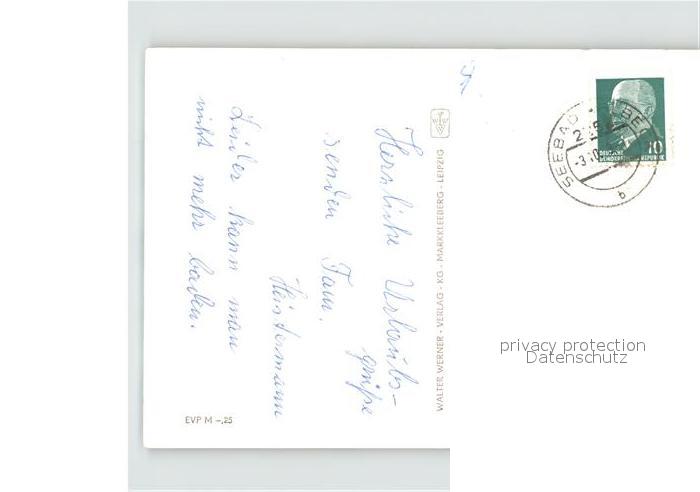 Herzliche Urlaubs-
grüße
senden Fam.
Hintermann
Leider kann man
nicht mehr baden.
EVP M -,25
WALTER WERNER · VERLAG · KG · MARKKLEEBERG - LEIPZIG
SEEBAD
10
DEUTSCHE
DEMOKRATISCHE REPUBLIK
b
privacy protection
Datenschutz